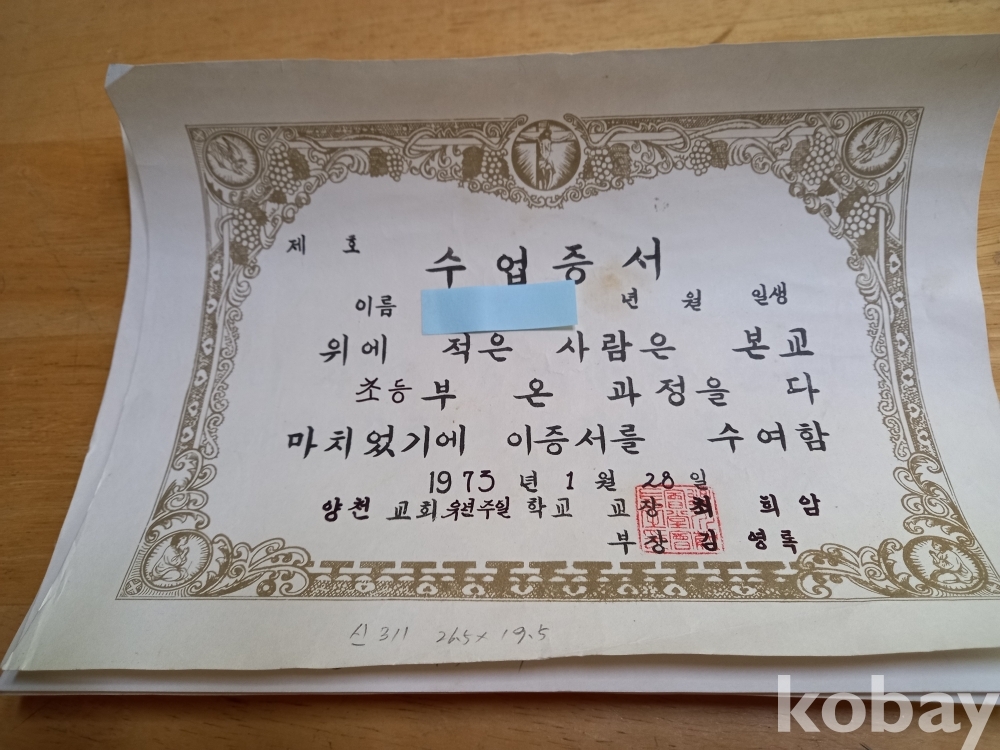 제 호
수업증서
이름 년 월 일생
위에 적은 사람은 본교
초등부 온 과정을 다
마치었기에 이증서를 수여함
1973년 1월 28일
양천 교회 유년주일 학교 교장 최희암
부장 김영록
신 311 26.5 x 19.5
kobay